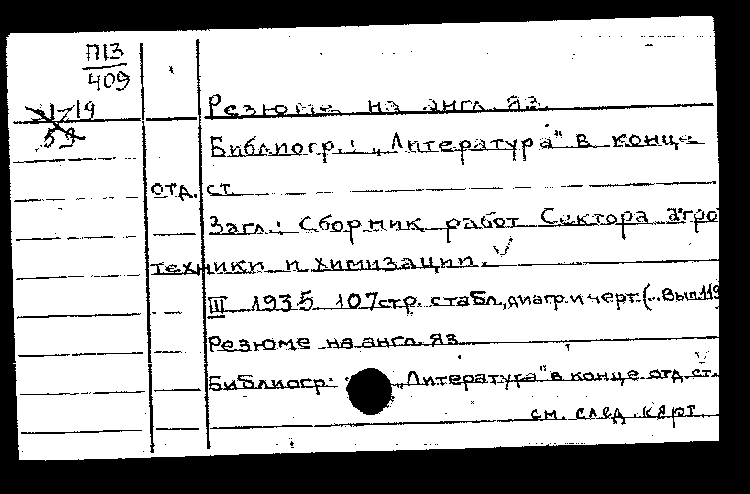 П13
409
31-19
59
Резюме на англ. яз.
Библиогр.: „Литература" в конце
отд. ст.
Загл.: Сборник работ Сектора агро
техники и химизации.
III 1935 107 стр. с табл., диагр. и черт. (..Вып. 119
Резюме на англ. яз.
Библиогр: „Литература" в конце отд. ст.
см. след. карт.